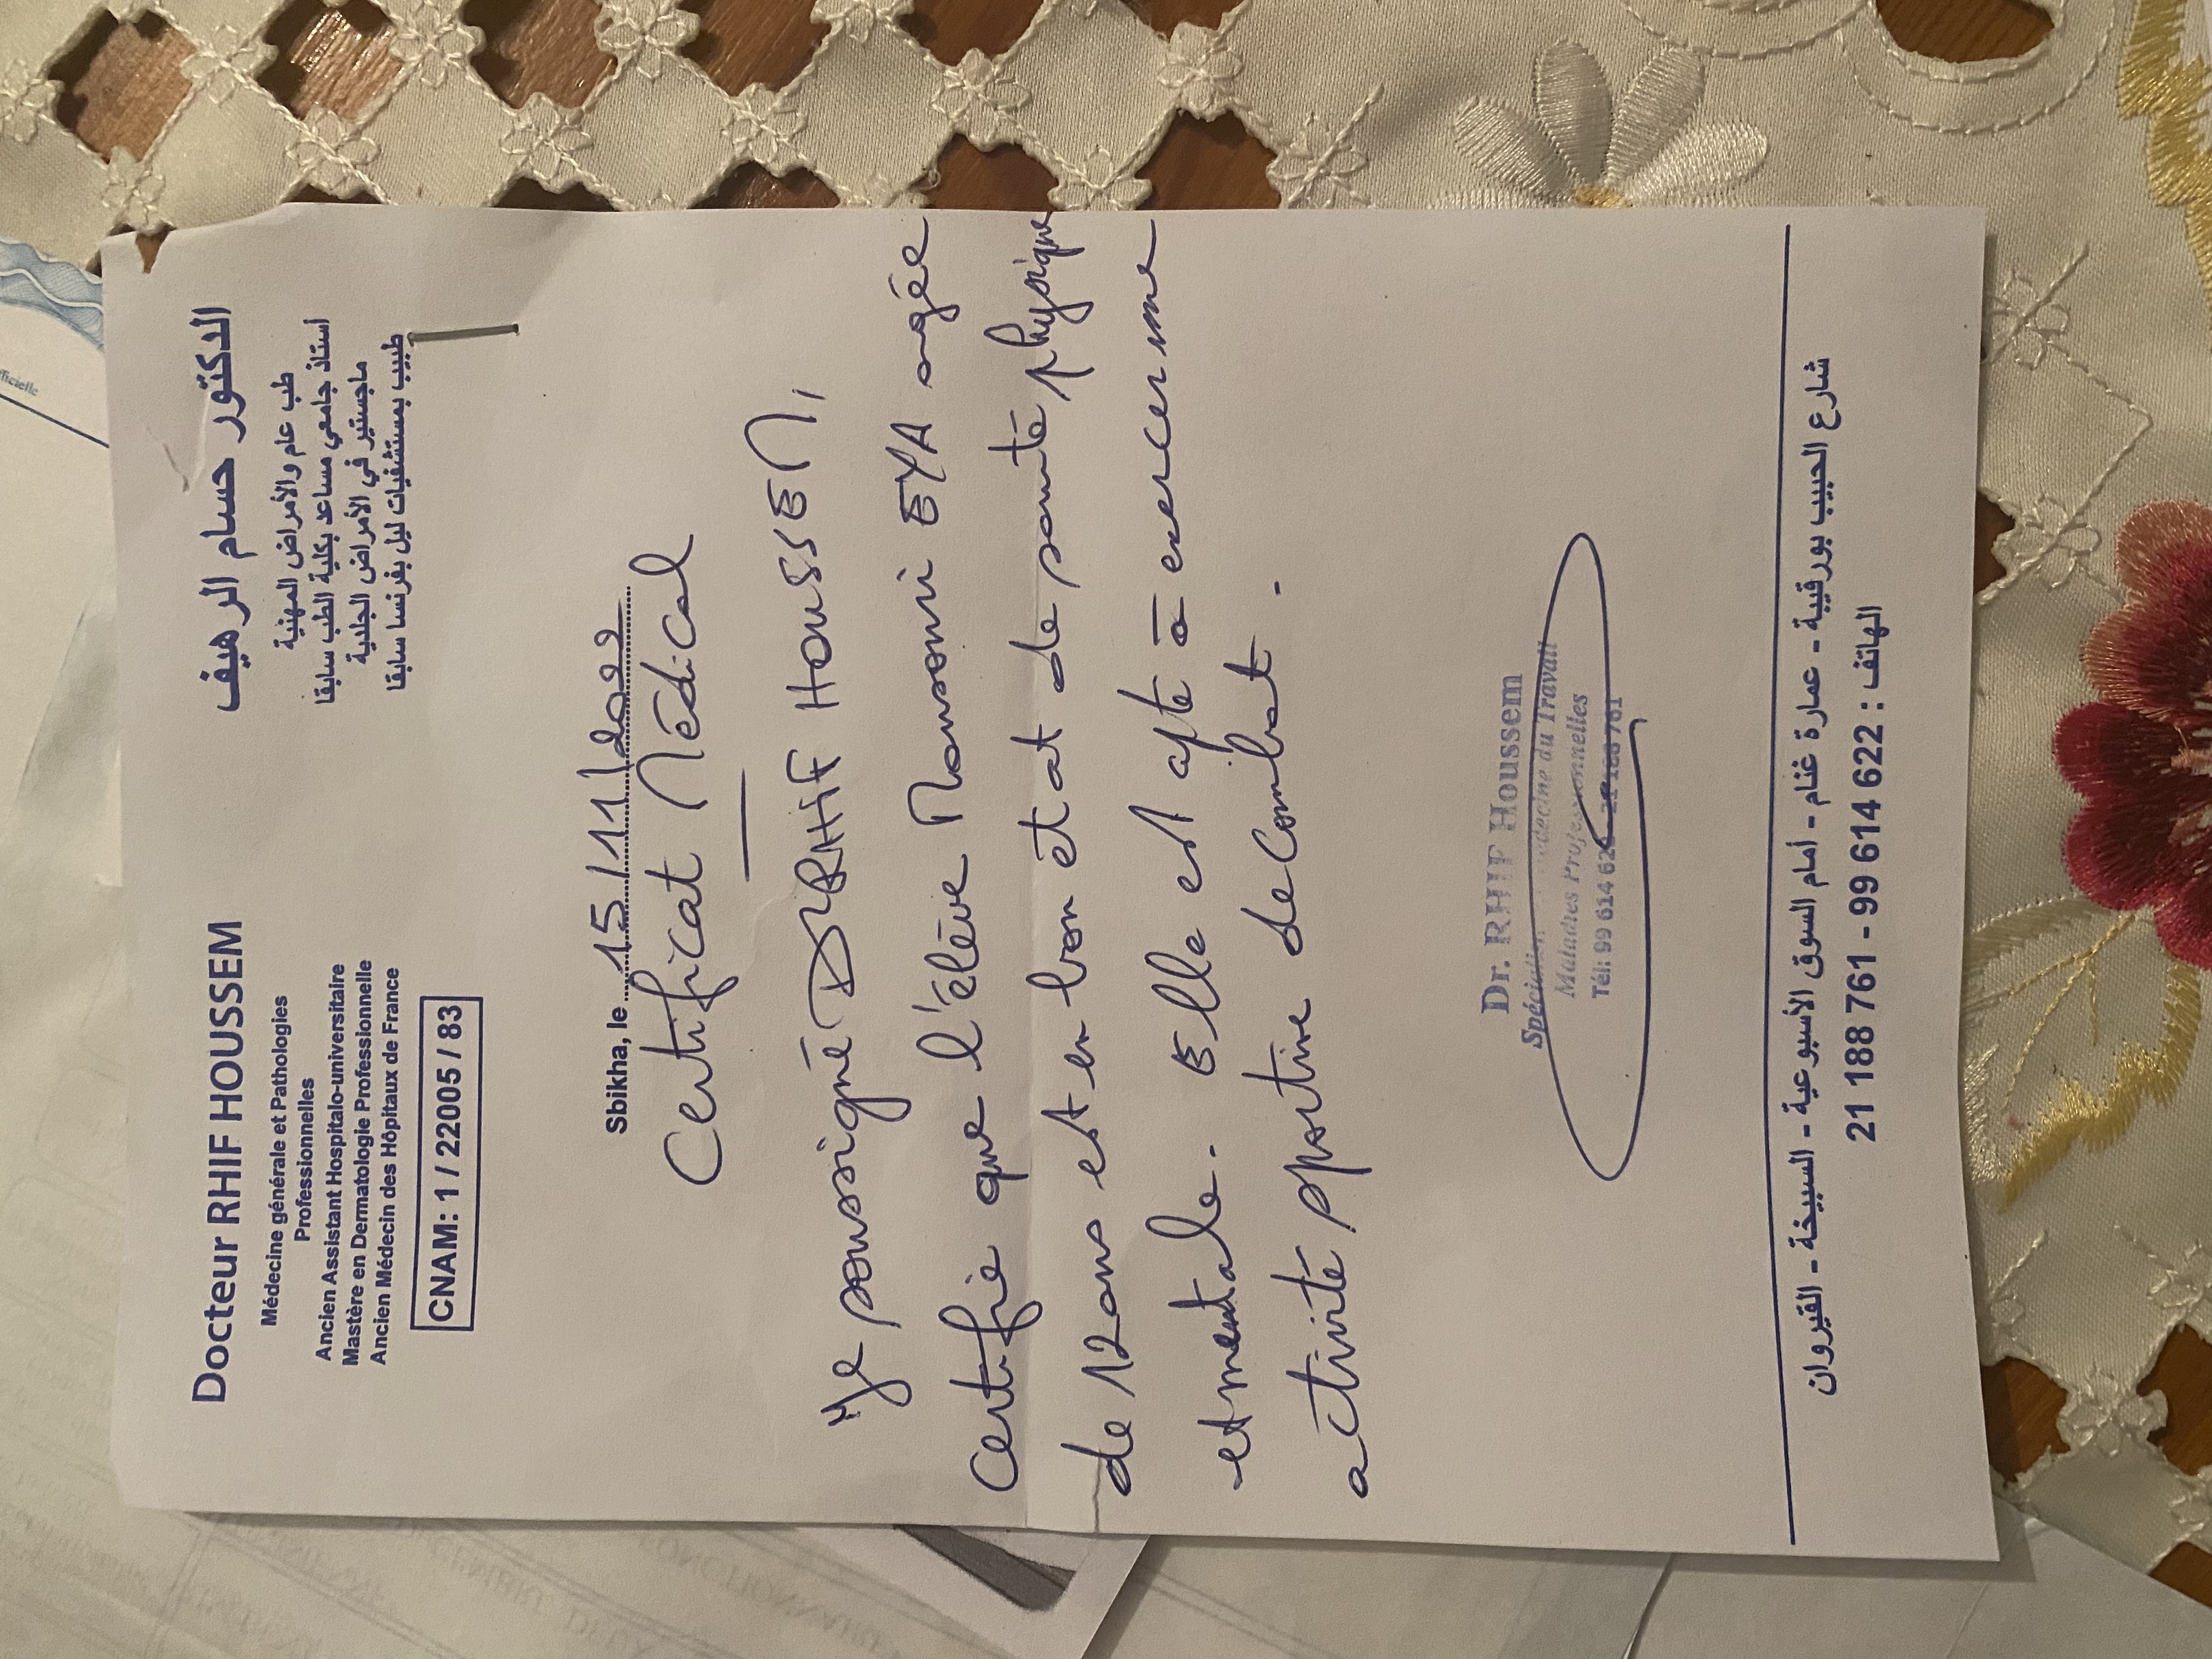 Docteur RHIF HOUSSEM
Médecine générale et Pathologies
Professionnelles
Ancien Assistant Hospitalo-universitaire
Mastère en Dermatologie Professionnelle
Ancien Médecin des Hôpitaux de France
CNAM: 1 / 22005 / 83
الدكتور حسام الرهيف
طب عام والأمراض المهنية
أستاذ جامعي مساعد بكلية الطب سابقا
ماجستير في الأمراض الجلدية
طبيب بمستشفيات ليل بفرنسا سابقا
Sbikha, le 15/11/2022
Certificat Médical
Je soussigné Dr RHIF HOUSSEM,
Certifie que l'élève Mousomi EYA agée
de 12ans est en bon état de santé physique
et mentale. Elle est apte à exercer une
activité sportive de Combat.
Dr. RHIF Houssem
Spécialiste Médecine du Travail
Maladies Professionnelles
Tél: 99 614 622 - 21 188 761
شارع الحبيب بورقيبة - عمارة غنام - أمام السوق الأسبوعية - السبيخة - القيروان
الهاتف : 622 614 99 - 761 188 21
officielle